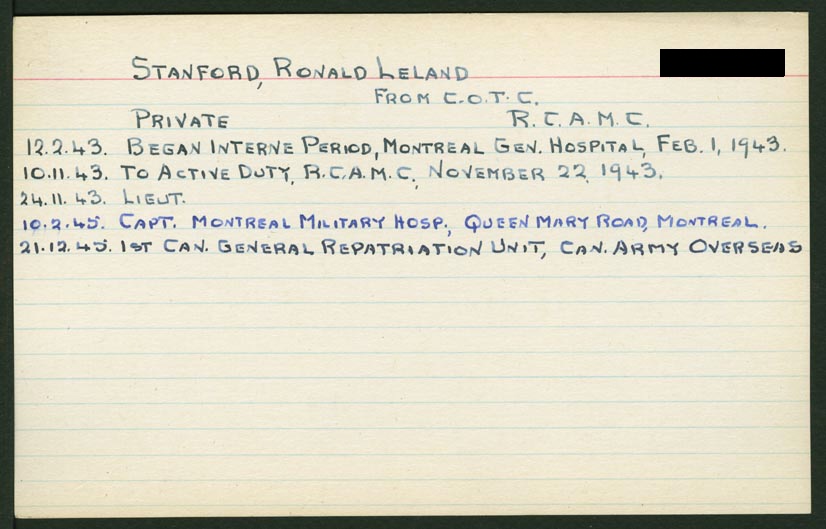 STANFORD, RONALD LELAND
FROM C.O.T.C.
PRIVATE R.C.A.M.C.
12.2.43. BEGAN INTERNE PERIOD, MONTREAL GEN. HOSPITAL, FEB. 1, 1943.
10.11.43. TO ACTIVE DUTY, R.C.A.M.C, NOVEMBER 22, 1943.
24.11.43. LIEUT.
10.2.45. CAPT. MONTREAL MILITARY HOSP., QUEEN MARY ROAD, MONTREAL.
21.12.45. 1ST CAN. GENERAL REPATRIATION UNIT, CAN. ARMY OVERSEAS